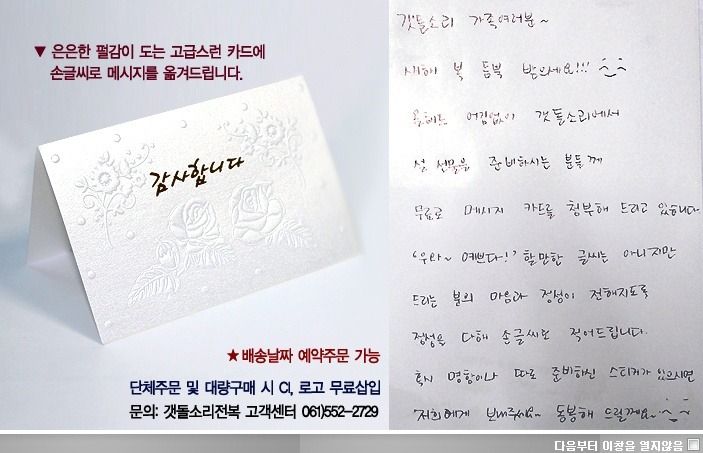 ▼ 은은한 펄감이 도는 고급스런 카드에
손글씨로 메시지를 옮겨드립니다.
감사합니다
★배송날짜 예약주문 가능
단체주문 및 대량구매 시 CI, 로고 무료삽입
문의: 갯돌소리전복 고객센터 061)552-2729
갯돌소리 가족여러분~
새해 복 듬뿍 받으세요!!!
올해도 어김없이 갯돌소리에서
설 선물을 준비하시는 분들께
무료로 메시지 카드를 첨부해 드리고 있습니다
'우와~ 예쁘다!' 할만한 글씨는 아니지만
드리는 분의 마음과 정성이 전해지도록
정성을 다해 손글씨로 적어드립니다.
혹시 명함이나 따로 준비하신 스티커가 있으시면
저희에게 보내주세요~ 동봉해 드릴께요~
다음부터 이창을 열지않음